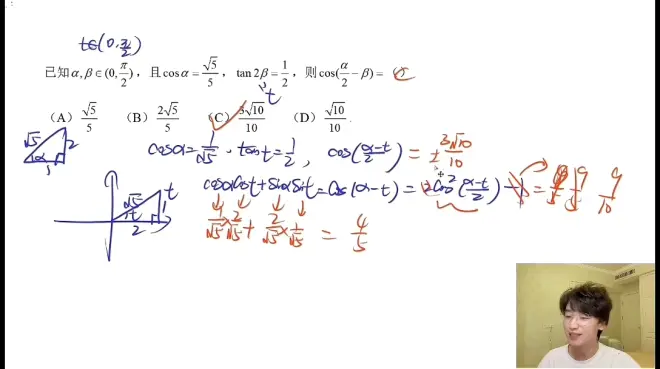 t∈(0,π/2)
已知α,β∈(0,π/2)，且cosα=√5/5，tan2β=1/2，则cos(α/2-β)=
t
（A）√5/5 （B）2√5/5 （C）3√10/10 （D）√10/10.
√5 2 α 1
cosα=1/√5 · tant=1/2, cos(α-t/2)=±3√10/10
cosαcost+sinαsint=cos(α-t)=2cos²(α-t/2)-1= 9/5 9/10
√5 t 1 t 2
1/√5×2/√5+2/√5×1/√5=4/5